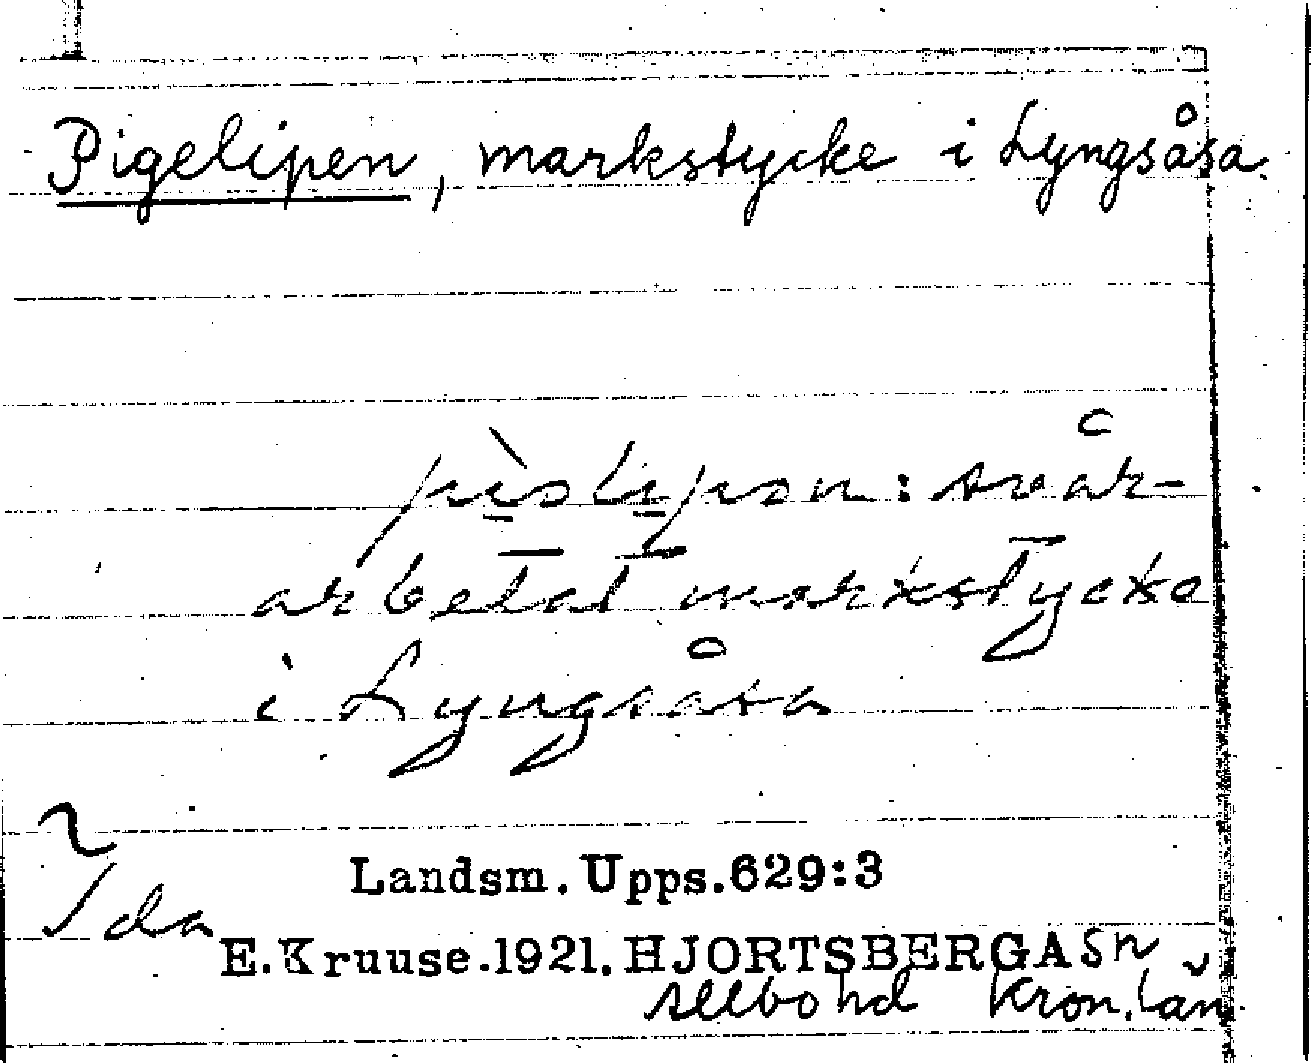 Pigelipen, markstycke i Lyngsåsa.
: svår-
arbetat markstycke
i Lyngsåsa
Ida
Landsm. Upps. 629:3
E. Kruuse. 1921. HJORTSBERGA sn
Allbo hd Kron. län